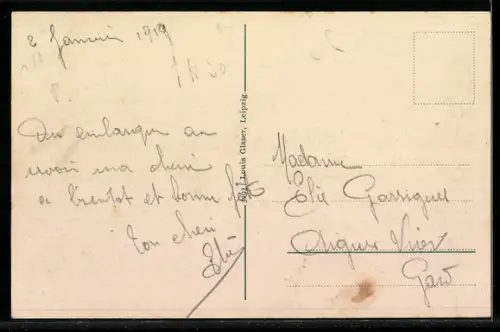 2 Janvier 1919
1 H 30
au
revoir ma chérie
a bientot et bonne fête
Ton cheri
Elie
Louis Glaser, Leipzig
Madame
Elie Garrigues
Aigues Vives
Gard